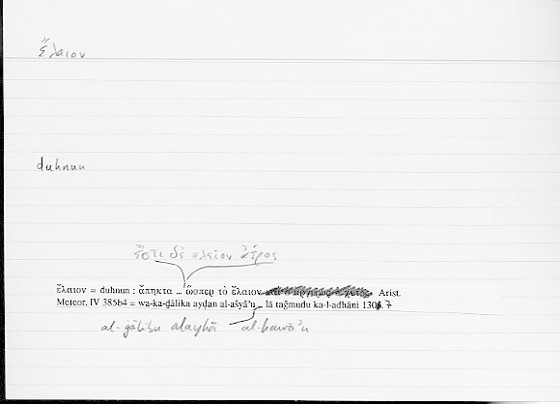 ἔλαιον
duhnun
ἔστι δὲ πλεῖον ἀέρος
ἔλαιον = duhnun : ἄπηκτα ... ὥσπερ τὸ ἔλαιον Arist.
Meteor. IV 385b4 = wa-ka-ḏālika ayḍan al-ašyāʾu ... lā taǧmudu ka-l-adhāni 1307
al-ġālibu alayhā al-hawāʾu